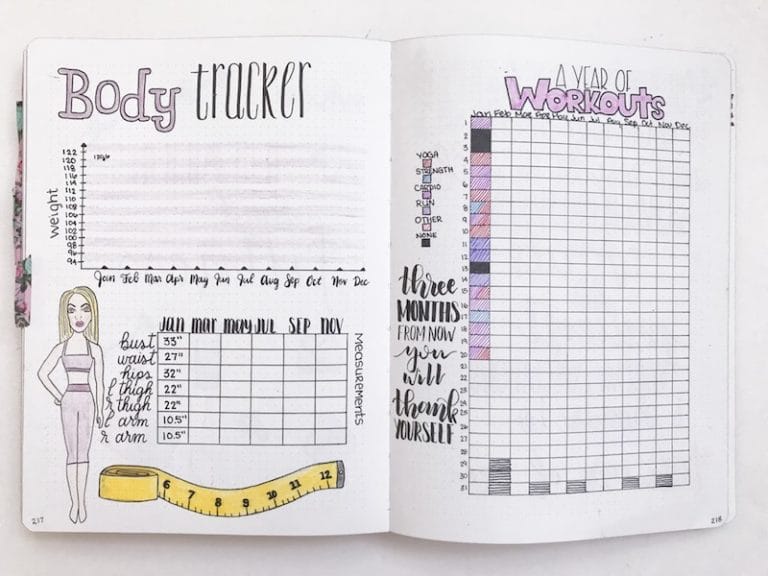 Body tracker
Weight
122
120
118
116
114
112
110
108
106
104
102
100
98
96
94
Jan Feb Mar Apr May Jun Jul Aug Sep Oct Nov Dec
JAN mar may JUL SEP NOV
bust 33"
waist 27"
hips 32"
l thigh 22"
r thigh 22"
l arm 10.5"
r arm 10.5"
Measurements
6 7 8 9 10 11 12
217
A YEAR OF
WORKOUTS
Jan Feb Mar Apr May Jun Jul Aug Sep Oct Nov Dec
1
2
3
4
5
6
7
8
9
10
11
12
13
14
15
16
17
18
19
20
21
22
23
24
25
26
27
28
29
30
31
YOGA
STRENGTH
CARDIO
RUN
OTHER
NONE
three
MONTHS
FROM NOW
you
will
thank
YOURSELF
218